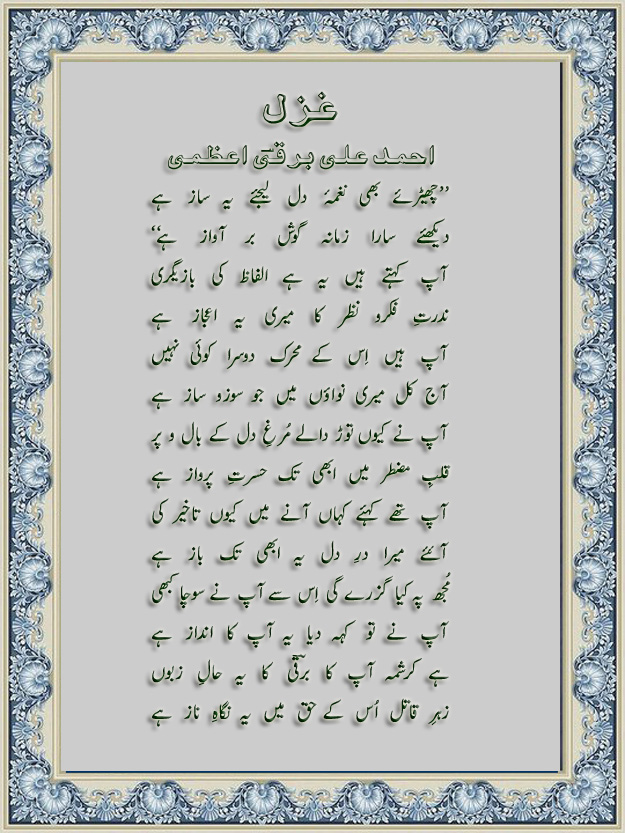 غزل
احمد علی برقیؔ اعظمی
’’چھیڑئے بھی نغمۂ دل لیجئے یہ ساز ہے
دیکھئے سارا زمانہ گوش بر آواز ہے‘‘
آپ کہتے ہیں یہ ہے الفاظ کی بازیگری
ندرتِ فکرو نظر کا میری یہ اعجاز ہے
آپ ہیں اِس کے محرک دوسرا کوئی نہیں
آج کل میری نواؤں میں جو سوزو ساز ہے
آپ نے کیوں توڑ دالے مُرغِ دل کے بال و پر
قلبِ مضطر میں ابھی تک حسرتِ پرواز ہے
آپ تھے کہئے کہاں آنے میں کیوں تاخیر کی
آئئے میرا درِ دل یہ ابھی تک باز ہے
مُجھ پہ کیا گزرے گی اِس سے آپ نے سوچا کبھی
آپ نے تو کہہ دیا یہ آپ کا انداز ہے
ہے کرشمہ آپ کا برقیؔ کا یہ حالِ زبوں
زہرِ قاتل اُس کے حق میں یہ نگاہِ ناز ہے